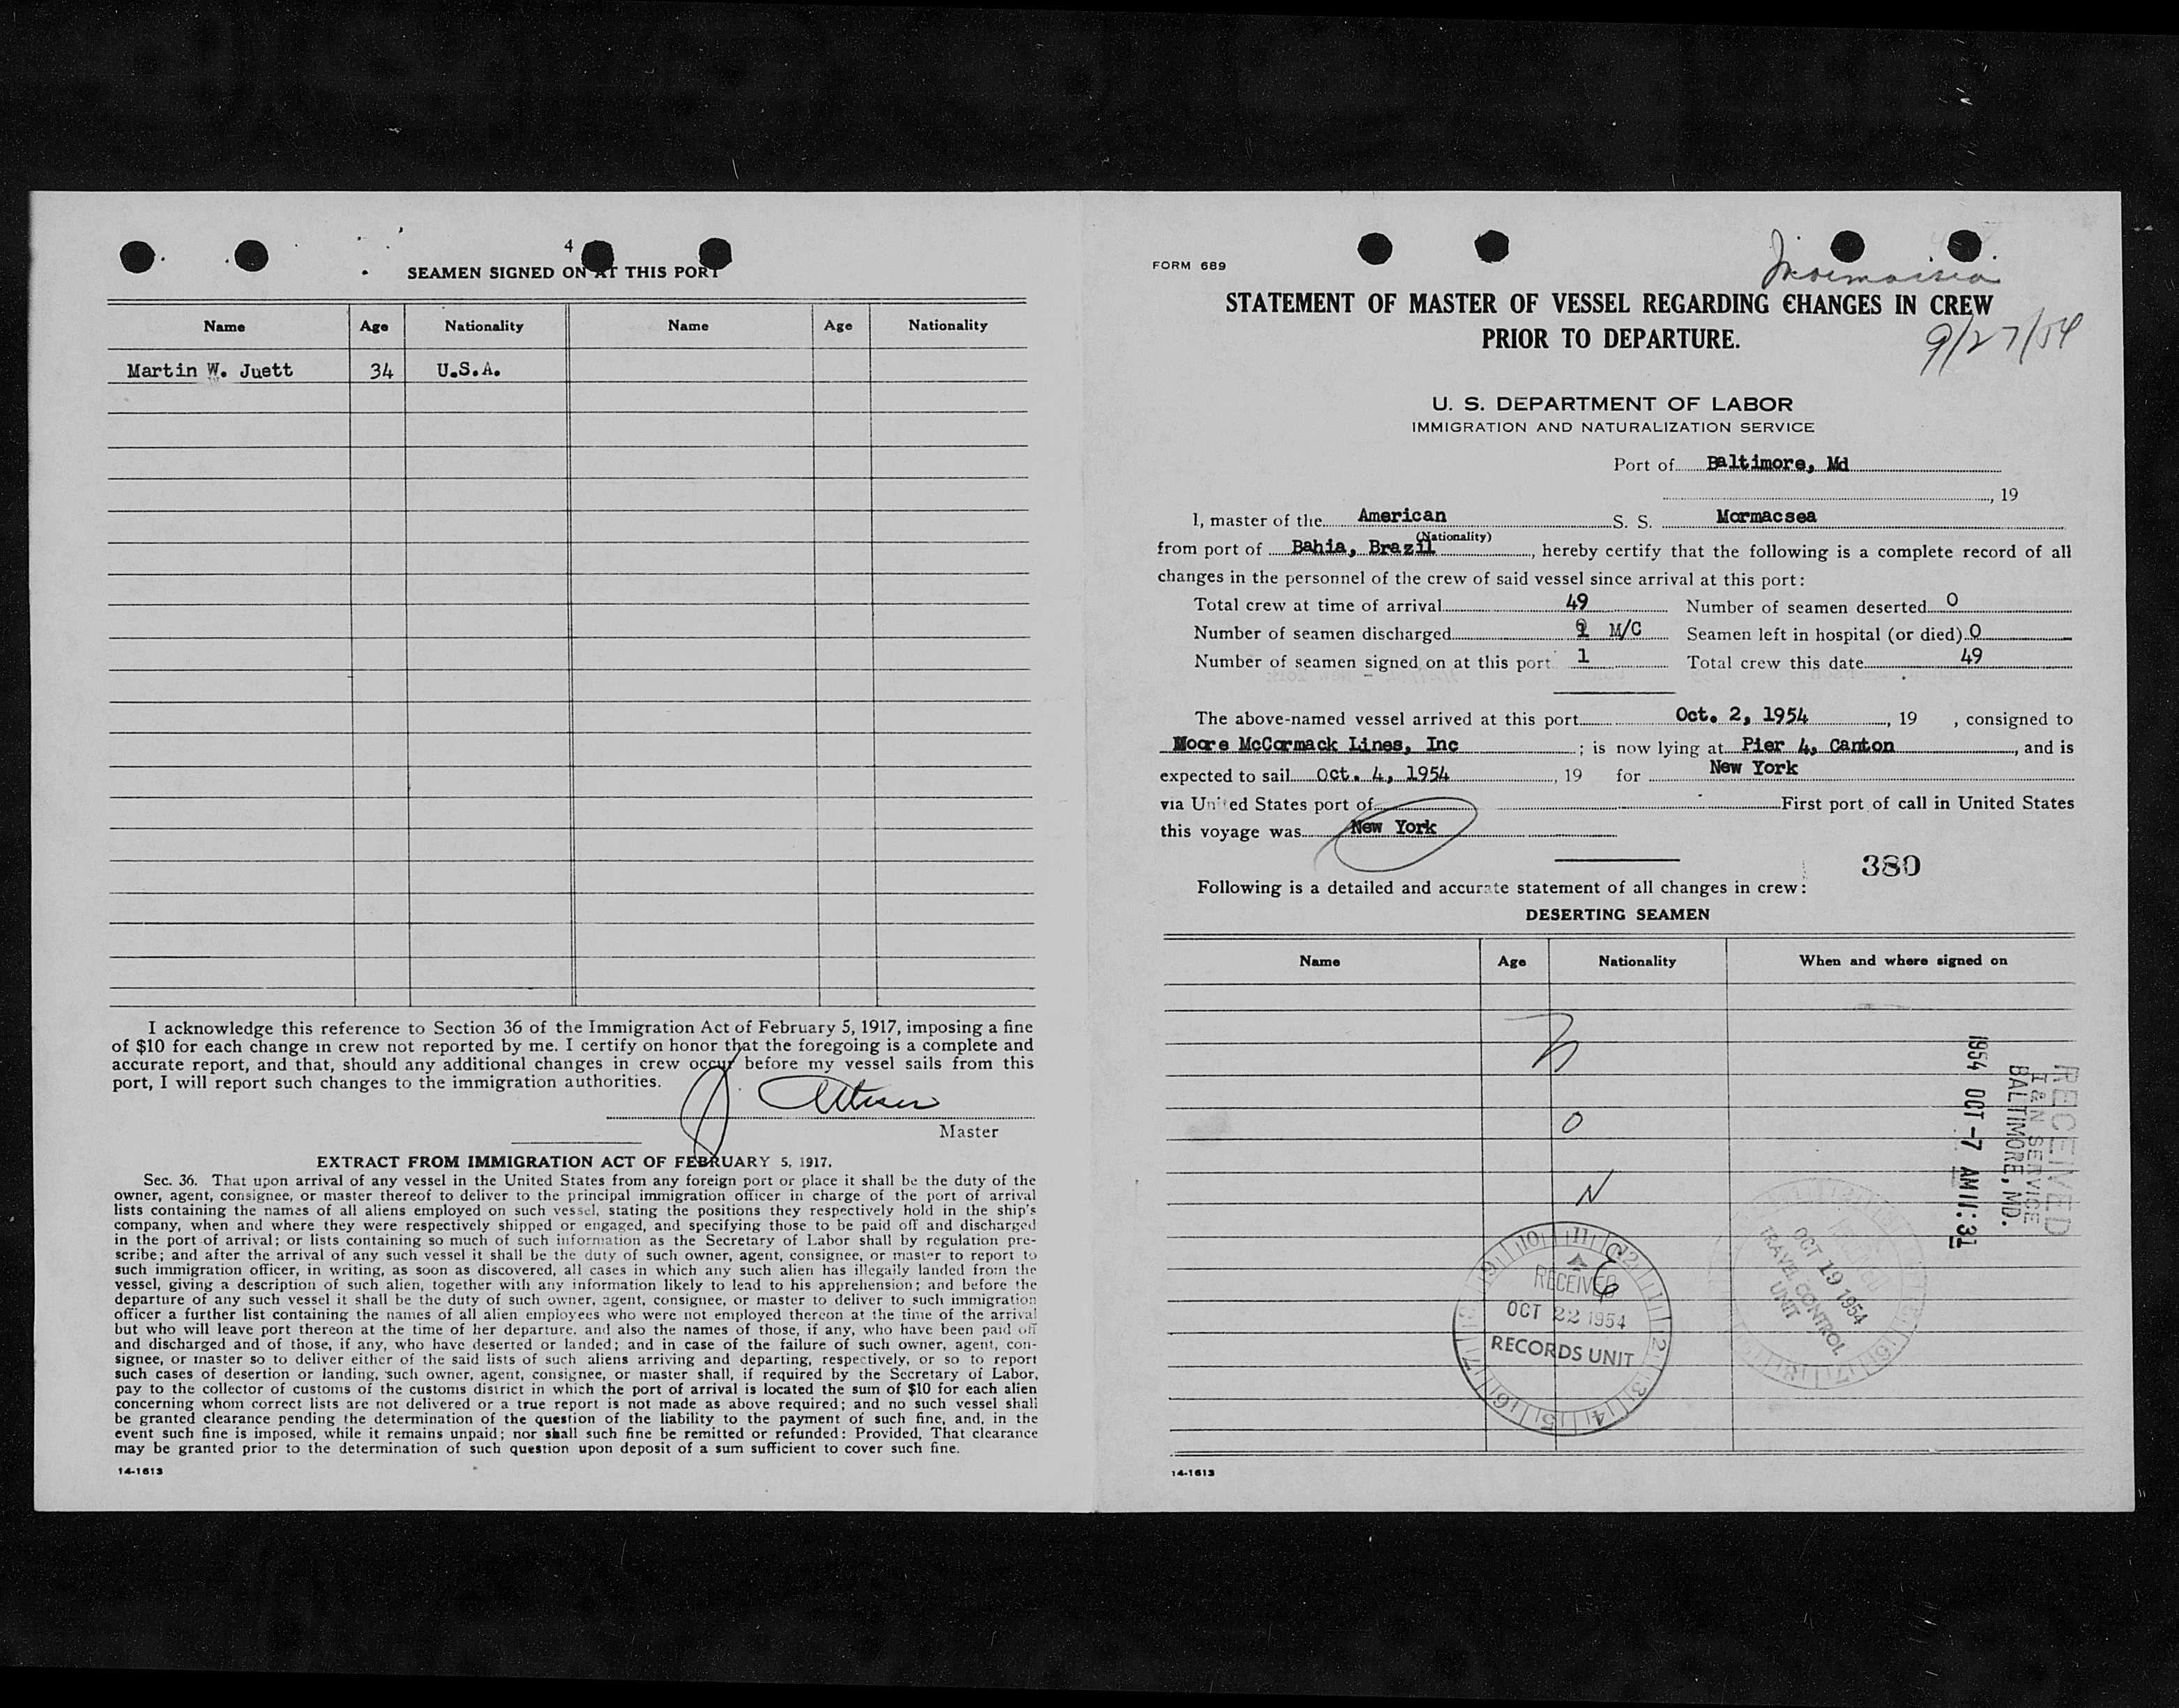 4
SEAMEN SIGNED ON AT THIS PORT
Name Age Nationality Name Age Nationality
Martin W. Juett 34 U.S.A.
I acknowledge this reference to Section 36 of the Immigration Act of February 5, 1917, imposing a fine
of $10 for each change in crew not reported by me. I certify on honor that the foregoing is a complete and
accurate report, and that, should any additional changes in crew occur before my vessel sails from this
port, I will report such changes to the immigration authorities.
Master
EXTRACT FROM IMMIGRATION ACT OF FEBRUARY 5, 1917.
Sec. 36. That upon arrival of any vessel in the United States from any foreign port or place it shall be the duty of the
owner, agent, consignee, or master thereof to deliver to the principal immigration officer in charge of the port of arrival
lists containing the names of all aliens employed on such vessel, stating the positions they respectively hold in the ship's
company, when and where they were respectively shipped or engaged, and specifying those to be paid off and discharged
in the port of arrival; or lists containing so much of such information as the Secretary of Labor shall by regulation pre-
scribe; and after the arrival of any such vessel it shall be the duty of such owner, agent, consignee, or master to report to
such immigration officer, in writing, as soon as discovered, all cases in which any such alien has illegally landed from the
vessel, giving a description of such alien, together with any information likely to lead to his apprehension; and before the
departure of any such vessel it shall be the duty of such owner, agent, consignee, or master to deliver to such immigration
officer a further list containing the names of all alien employees who were not employed thereon at the time of the arrival
but who will leave port thereon at the time of her departure, and also the names of those, if any, who have been paid off
and discharged and of those, if any, who have deserted or landed; and in case of the failure of such owner, agent, con-
signee, or master so to deliver either of the said lists of such aliens arriving and departing, respectively, or so to report
such cases of desertion or landing, such owner, agent, consignee, or master shall, if required by the Secretary of Labor,
pay to the collector of customs of the customs district in which the port of arrival is located the sum of $10 for each alien
concerning whom correct lists are not delivered or a true report is not made as above required; and no such vessel shall
be granted clearance pending the determination of the question of the liability to the payment of such fine, and, in the
event such fine is imposed, while it remains unpaid; nor shall such fine be remitted or refunded: Provided, That clearance
may be granted prior to the determination of such question upon deposit of a sum sufficient to cover such fine.
14-1613
FORM 689
Mormacsea
STATEMENT OF MASTER OF VESSEL REGARDING CHANGES IN CREW
PRIOR TO DEPARTURE.
9/27/54
U. S. DEPARTMENT OF LABOR
IMMIGRATION AND NATURALIZATION SERVICE
Port of Baltimore, Md
, 19
I, master of the American S. S. Mormacsea
(Nationality)
from port of Bahia, Brazil, hereby certify that the following is a complete record of all
changes in the personnel of the crew of said vessel since arrival at this port:
Total crew at time of arrival 49 Number of seamen deserted 0
Number of seamen discharged 1 M/C Seamen left in hospital (or died) 0
Number of seamen signed on at this port 1 Total crew this date 49
The above-named vessel arrived at this port Oct. 2, 1954, 19 , consigned to
Moore McCormack Lines, Inc ; is now lying at Pier 4, Canton, and is
expected to sail Oct. 4, 1954, 19 for New York
via United States port of First port of call in United States
this voyage was New York
380
Following is a detailed and accurate statement of all changes in crew:
DESERTING SEAMEN
Name Age Nationality When and where signed on
N
O
N
E
RECEIVED
I & N SERVICE
BALTIMORE, MD.
1954 OCT -7 AM 11:31
RECEIVED
OCT 22 1954
RECORDS UNIT
RECEIVED
OCT 19 1954
TRAVEL CONTROL
UNIT
14-1613